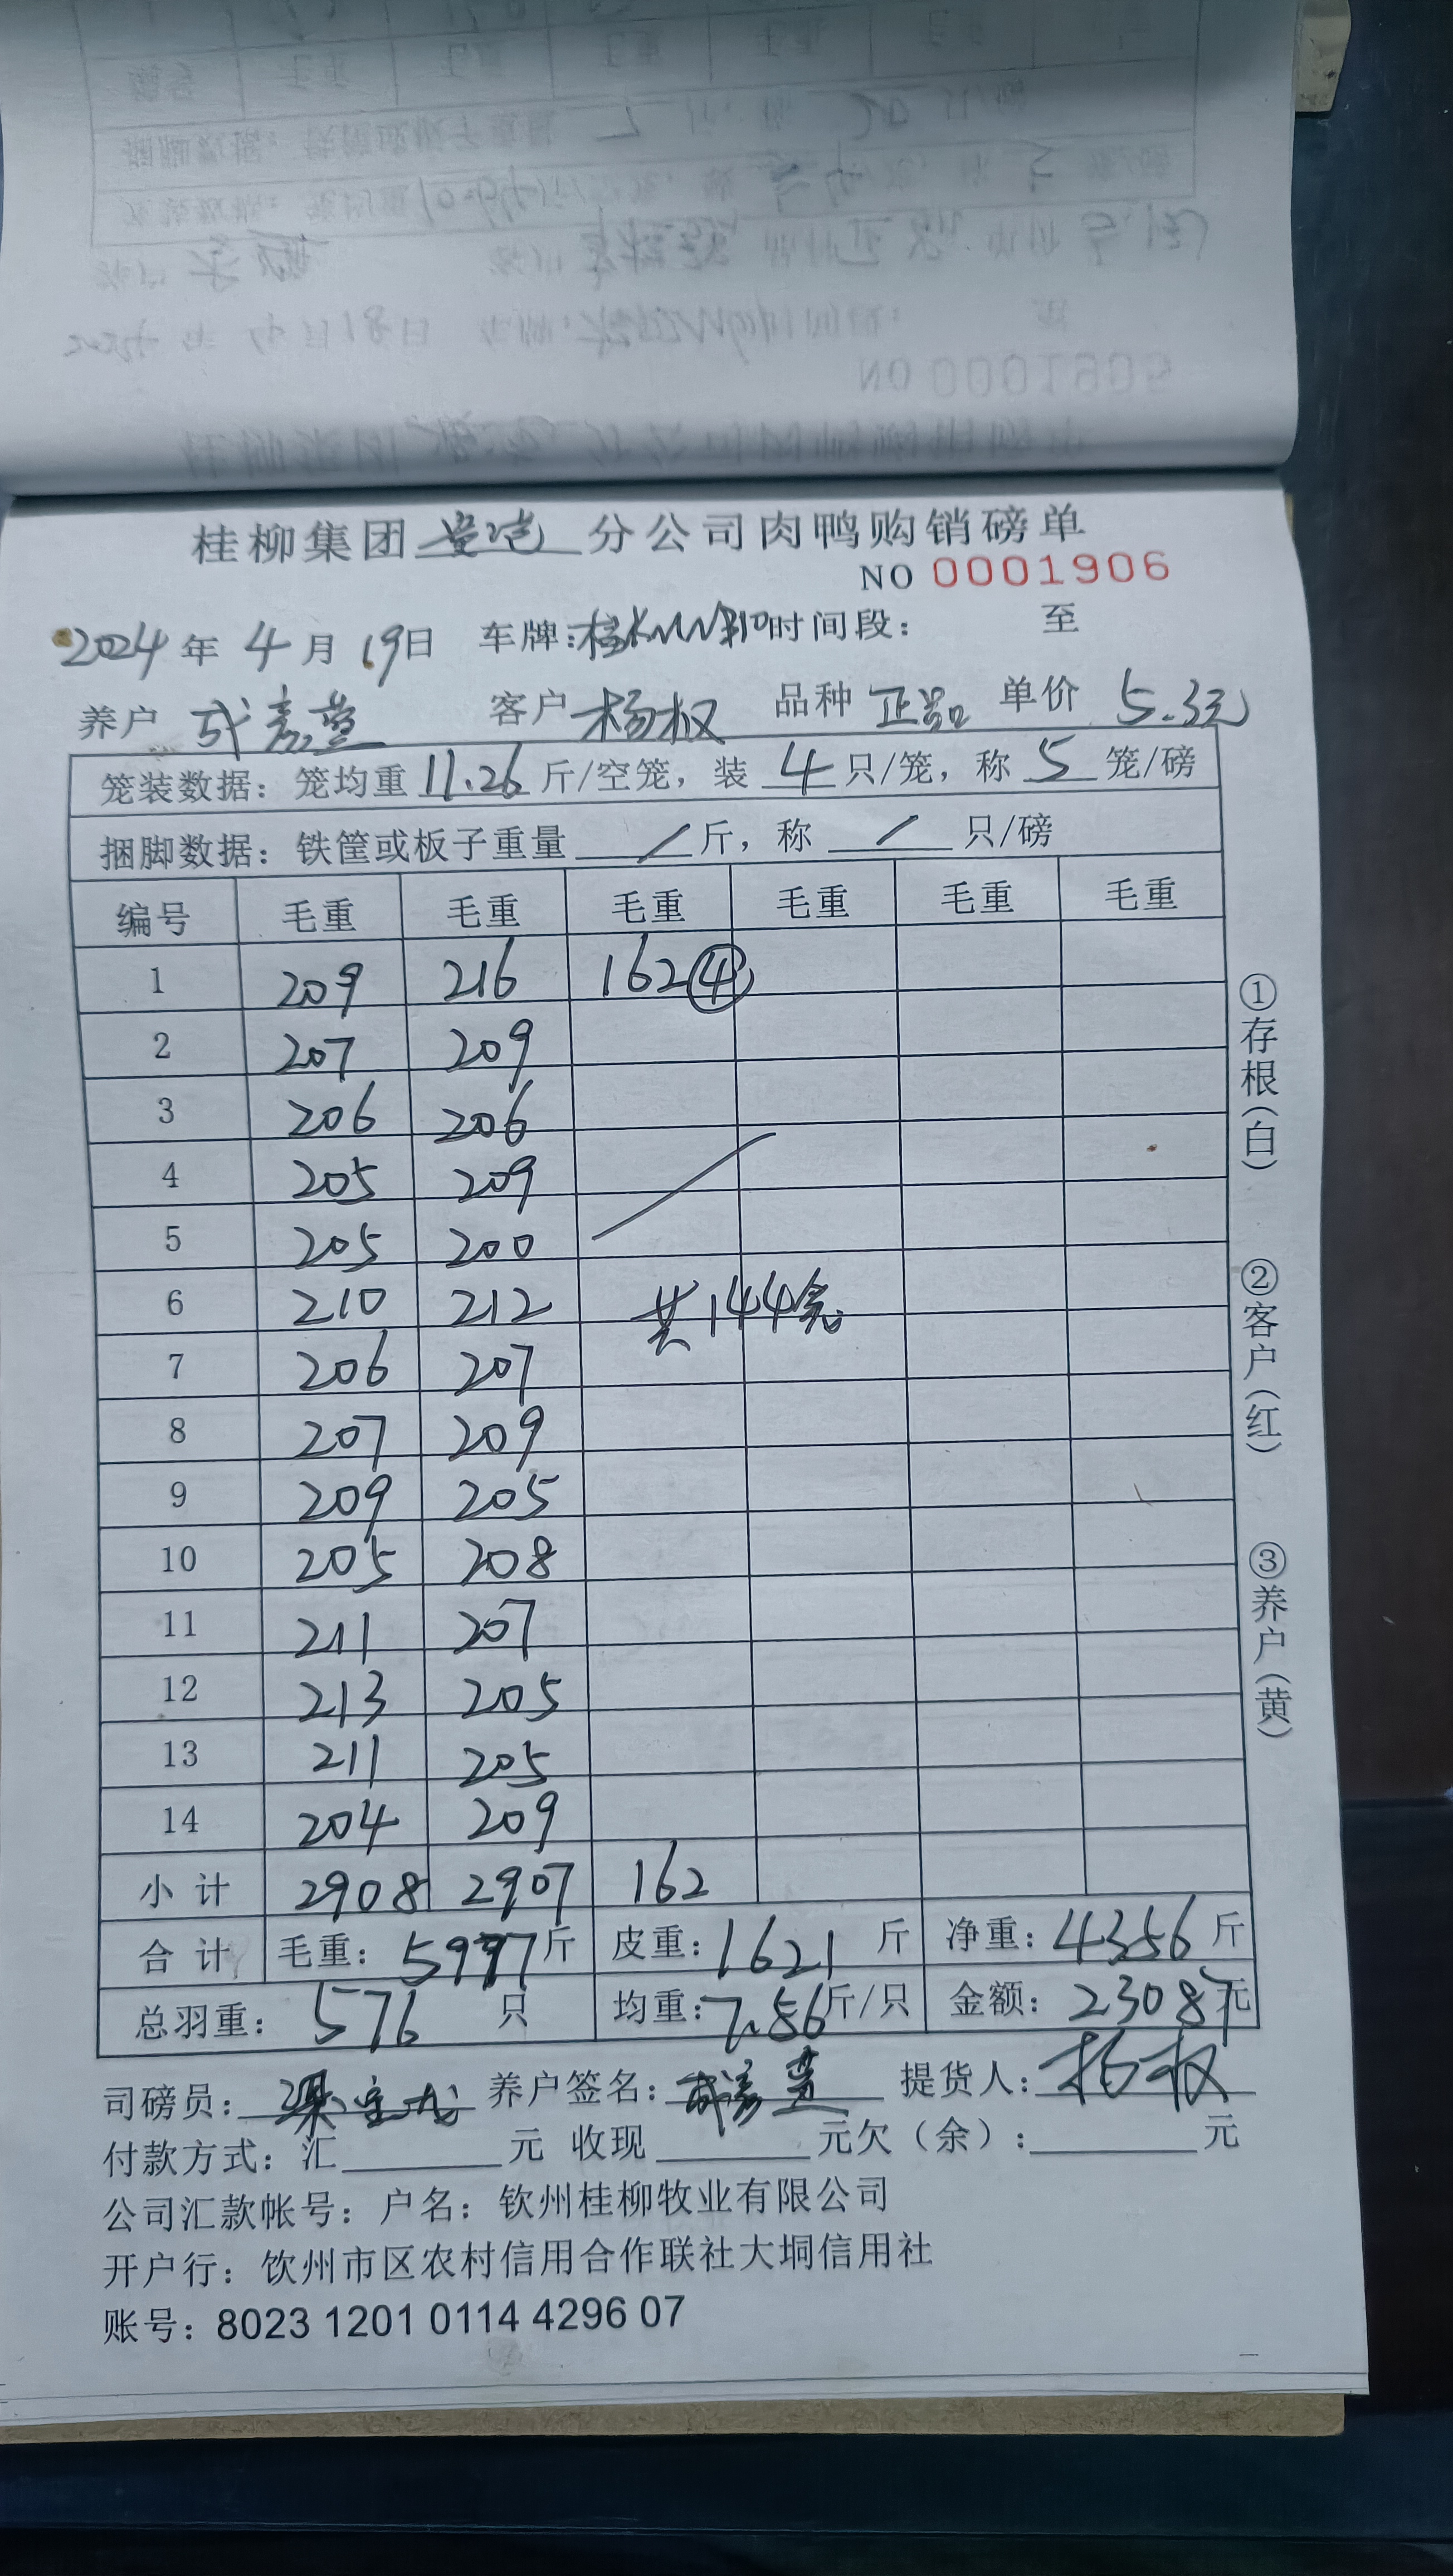 桂柳集团 分公司肉鸭购销磅单
NO 0001906
2024年 4月 19日 车牌:桂 时间段: 至
养户 客户 杨权 品种 正品 单价 5.3元
笼装数据: 笼均重 11.26 斤/空笼, 装 4 只/笼, 称 5 笼/磅
捆脚数据: 铁筐或板子重量 / 斤, 称 / 只/磅
编号 毛重 毛重 毛重 毛重 毛重 毛重
1 209 216 162 ④
2 207 209
3 206 206
4 205 209
5 205 200
6 210 212 共144笼
7 206 207
8 207 209
9 209 205
10 205 208
11 211 207
12 213 205
13 211 205
14 204 209
小计 2908 2907 162
合计 毛重: 5977斤 皮重: 1621 斤 净重: 4356斤
总羽重: 576 只 均重: 7.56斤/只 金额: 23087元
司磅员: 养户签名: 提货人: 杨权
付款方式: 汇 元 收现 元欠(余): 元
公司汇款帐号: 户名: 钦州桂柳牧业有限公司
开户行: 饮州市区农村信用合作联社大垌信用社
账号: 8023 1201 0114 4296 07
①存根(白)
②客户(红)
③养户(黄)